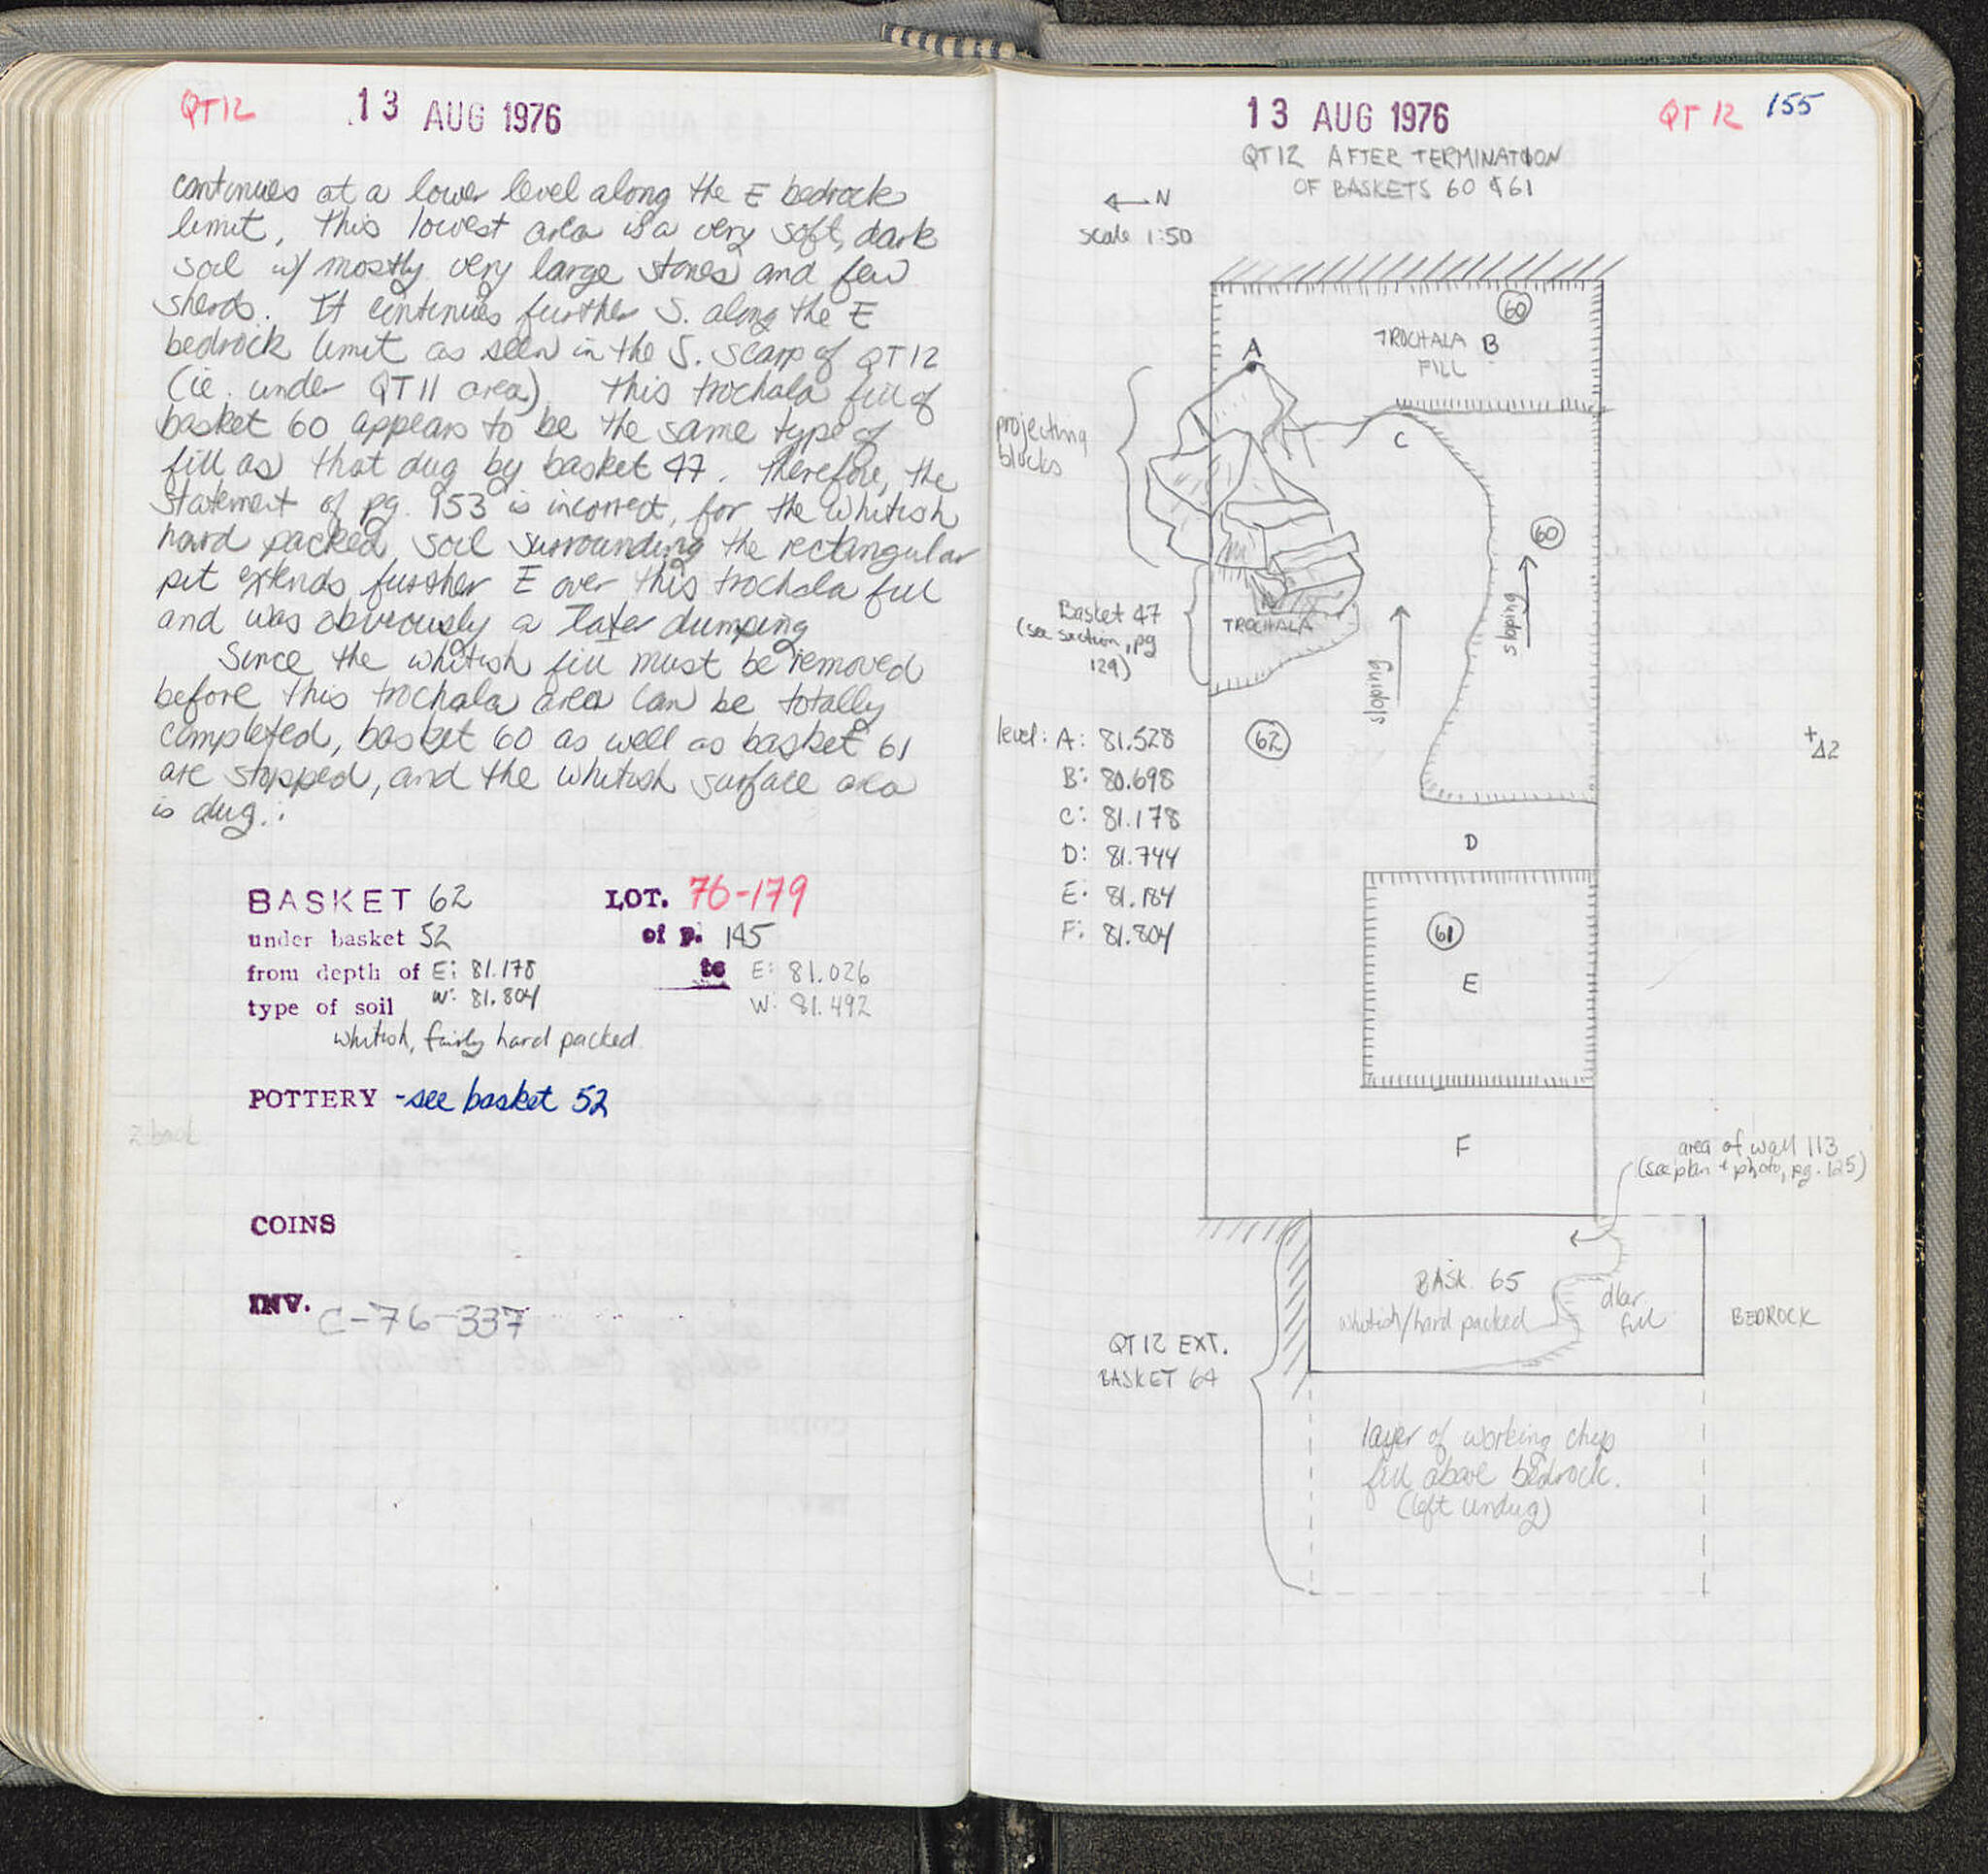 QT12 13 AUG 1976
continues at a lower level along the E bedrock
limit, this lowest area is a very soft, dark
soil w/ mostly very large stones and few
sherds. It continues further S. along the E
bedrock limit as seen in the S. scarp of QT12
(ie. under QT11 area). This trochala fill of
basket 60 appears to be the same type of
fill as that dug by basket 47. Therefore, the
statement of pg. 153 is incorrect, for the whitish
hard packed soil surrounding the rectangular
pit extends further E over this trochala fill
and was obviously a later dumping
Since the whitish fill must be removed
before this trochala area can be totally
completed, basket 60 as well as basket 61
are stopped, and the whitish surface area
is dug.:
BASKET 62 LOT. 76-179
under basket 52 of p. 145
from depth of E: 81.178 to E: 81.026
type of soil W: 81.804 W: 81.492
whitish, fairly hard packed
POTTERY - see basket 52
COINS
INV. C-76-337
13 AUG 1976 QT 12 155
QT12 AFTER TERMINATION
OF BASKETS 60 & 61
N
scale 1:50
60
TROCHALA B
FILL
A
C
projecting
blocks
60
Basket 47
(see section, pg
129)
TROCHALA
sloping
sloping
level: A: 81.528
B: 80.698
C: 81.178
D: 81.744
E: 81.184
F: 81.804
62
+
Δ2
D
61
E
F
area of wall 113
(see plan + photo, pg. 125)
BASK. 65
whitish/hard packed
dkr
fill
BEDROCK
QT12 EXT.
BASKET 64
layer of working chip
fill above bedrock.
(left undug)